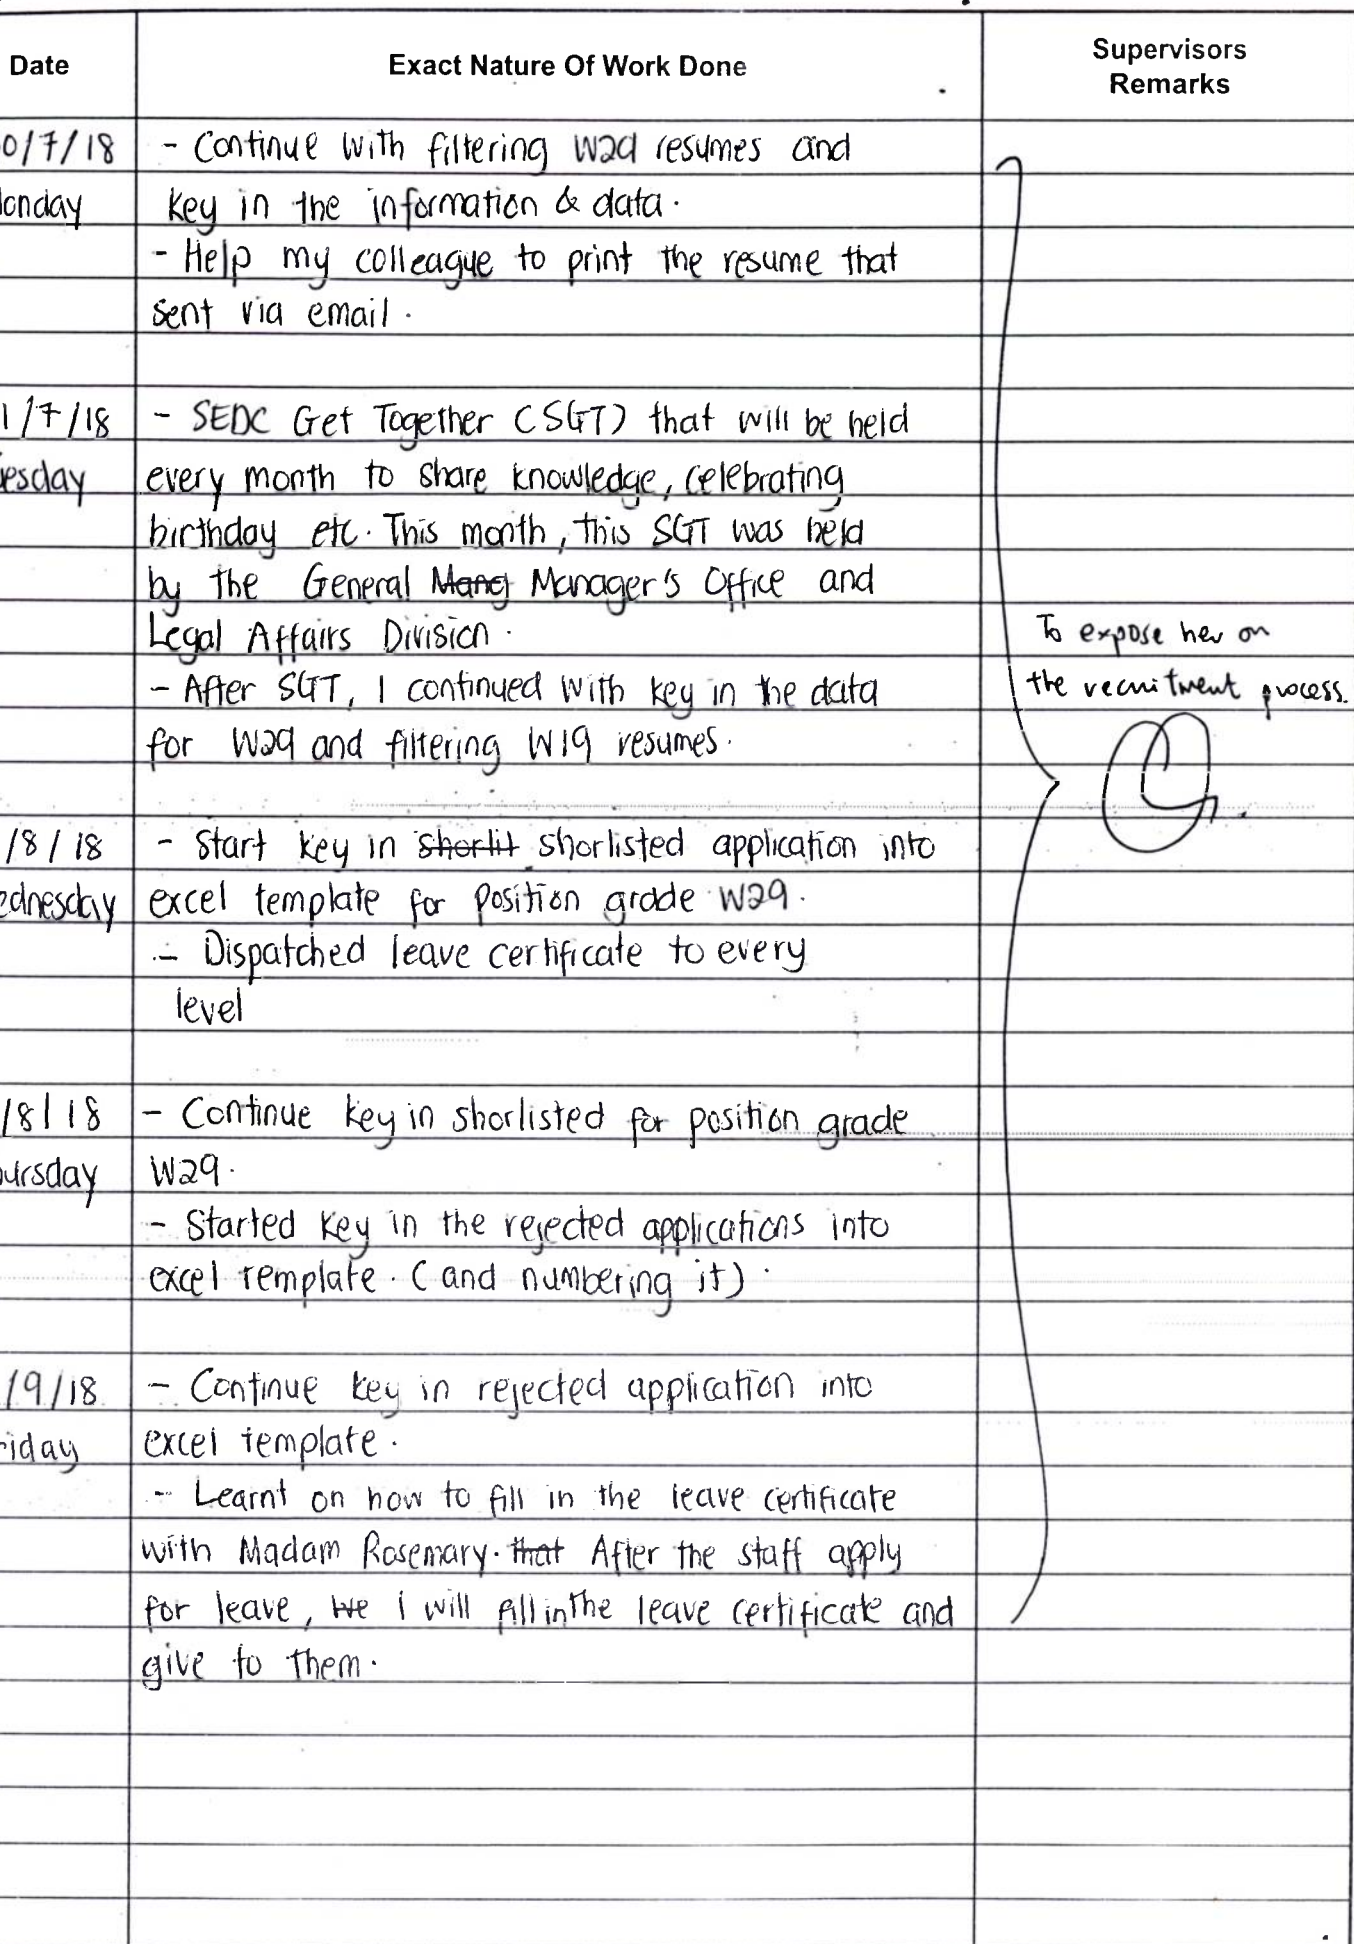 Date Exact Nature Of Work Done Supervisors
Remarks
0/7/18 - Continue with filtering W29 resumes and
onday key in the information & data.
- Help my colleague to print the resume that
sent via email.
1/7/18 - SEDC Get Together (SGT) that will be held
esday every month to share knowledge, celebrating
birthday etc. This month, this SGT was held
by the General Mang Manager's Office and
Legal Affairs Division. To expose her on
- After SGT, I continued with key in the data the recruitment process.
for W29 and filtering W19 resumes.
/8/18 - Start key in shorlit shorlisted application into
ednesday excel template for position grade W29.
- Dispatched leave certificate to every
level
/8/18 - Continue key in shorlisted for position grade
ursday W29.
- Started key in the rejected applications into
excel template. (and numbering it).
/9/18 - Continue key in rejected application into
riday excel template.
- Learnt on how to fill in the leave certificate
with Madam Rosemary. that After the staff apply
for leave, we I will fill in the leave certificate and
give to them.